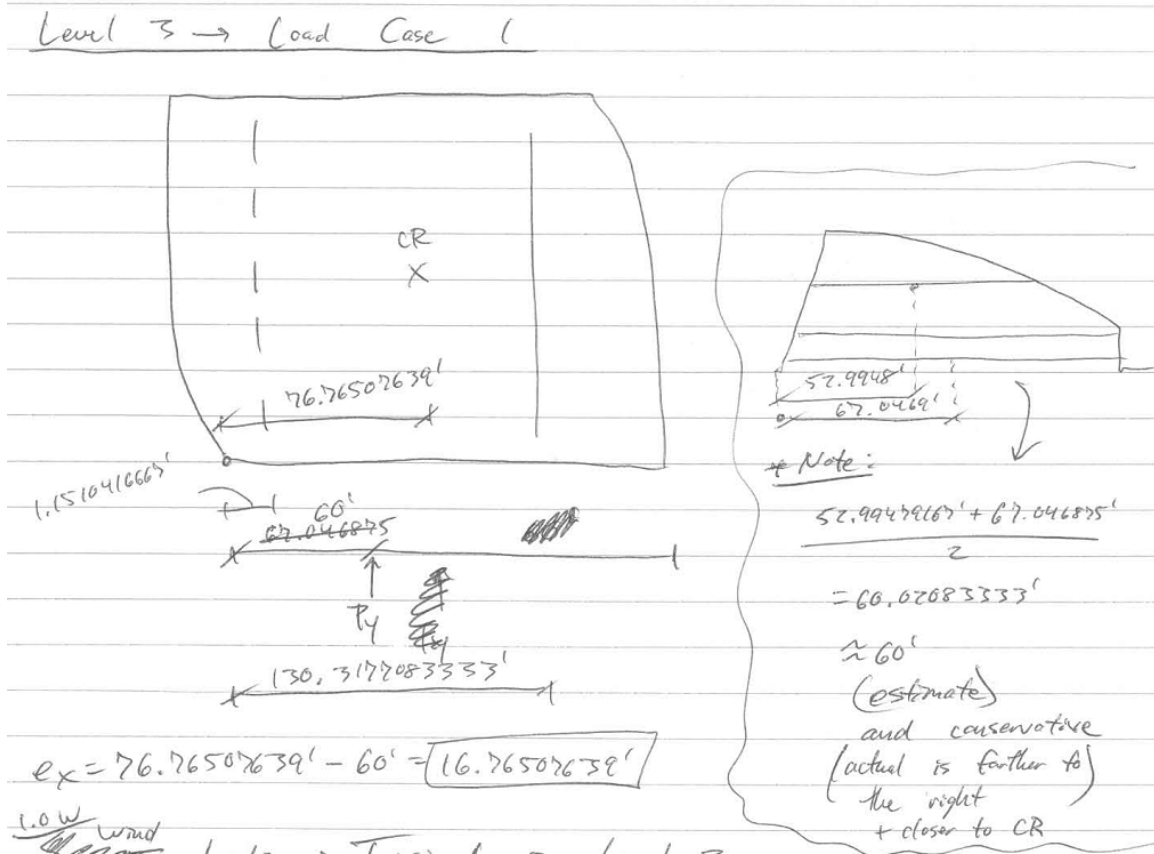 Level 3 → Load Case 1
CR
X
76.76507639'
1.1510416667'
60'
67.046875
Py
130.3177083333'
ex = 76.76507639' - 60' = 16.76507639'
1.0W
Wind
52.9948'
67.0469'
* Note:
52.99479167' + 67.046875'
2
= 60.02083333'
≈ 60'
(estimate)
and conservative
(actual is farther to
the right
+ closer to CR